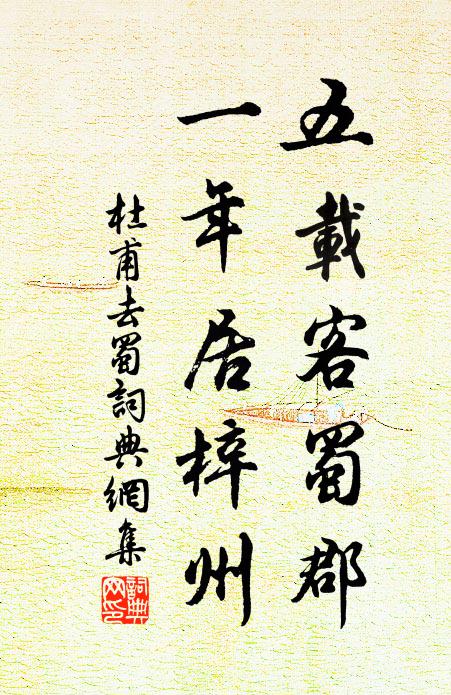 五載客蜀郡
一年居梓州
杜甫去蜀詞典網集
詞典
网印